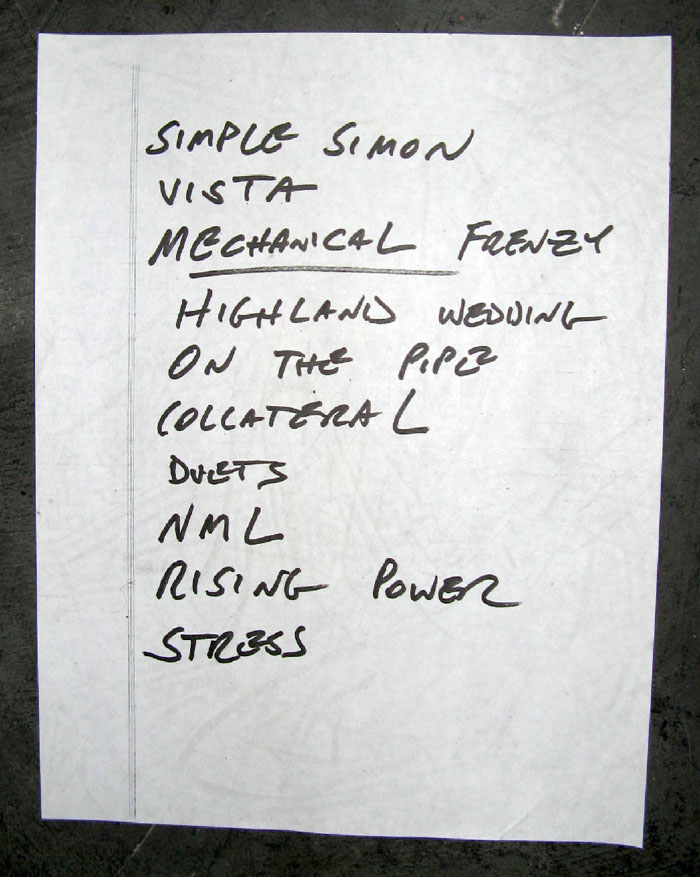 SIMPLE SIMON
VISTA
MECHANICAL FRENZY
HIGHLAND WEDDING
ON THE PIPE
COLLATERAL
DUETS
NML
RISING POWER
STRESS